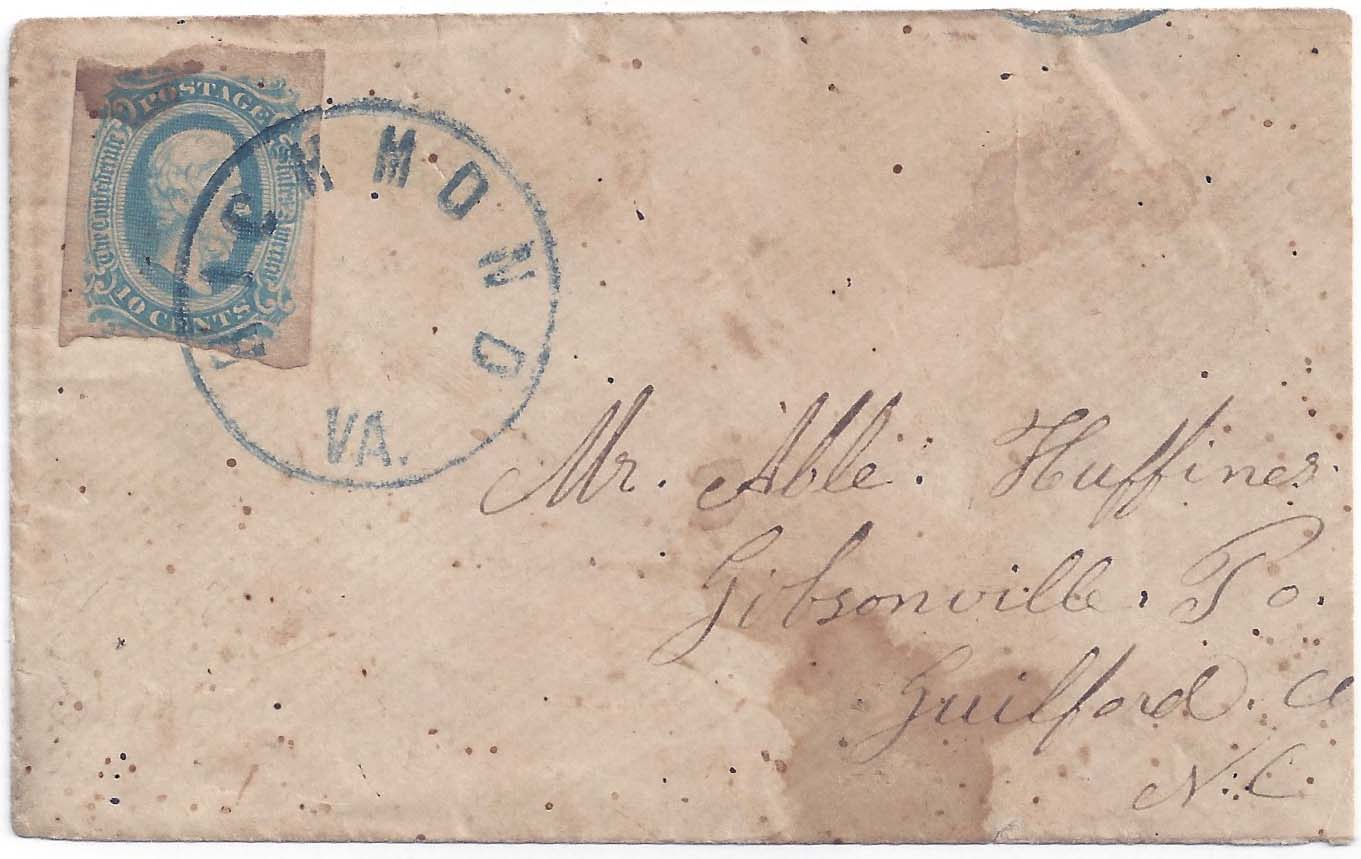 POSTAGE
The Confederate States of America
10 CENTS
RICHMOND
VA.
Mr. Able. Huffines.
Gibsonville. Po.
Guilford. Co
N. C.